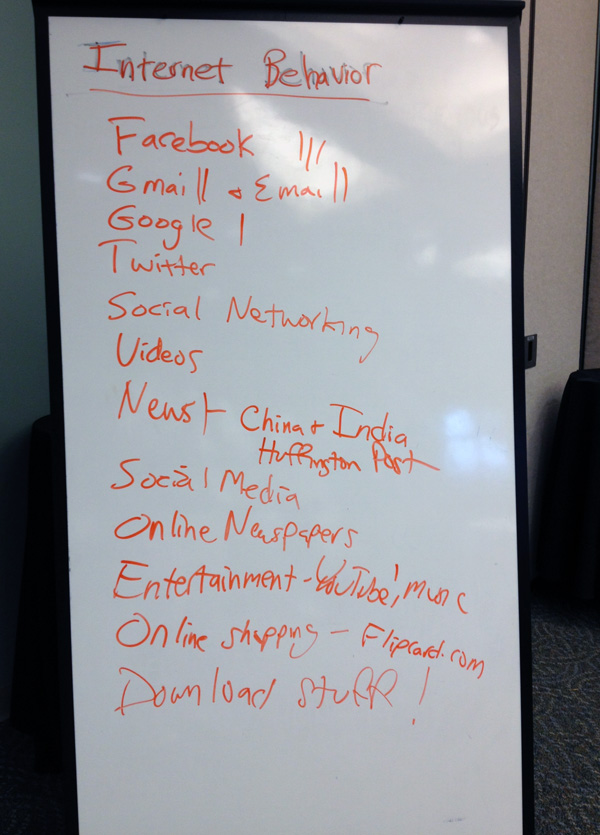 Internet Behavior
Facebook |||
Gmail| & Email|
Google |
Twitter
Social Networking
Videos
News| - China & India
Huffington Post
Social Media
Online Newspapers
Entertainment - YouTube|, music
Online shopping - Flipcard.com
Download stuff!